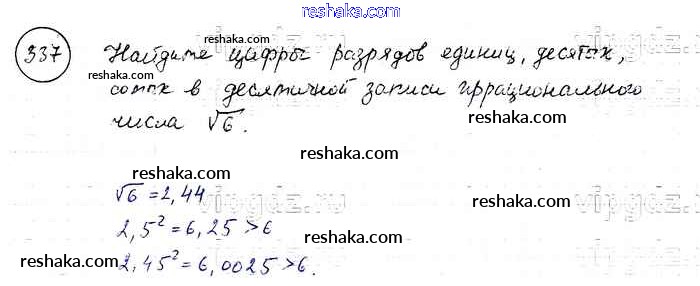 reshaka.com
337 Найдите цифры разрядов единиц, десятых,
reshaka.com
reshaka.com
сотых в десятичной записи иррационального
reshaka.com
числа √6.
reshaka.com
reshaka.com
√6 = 2,44
vipgdz.com
reshaka.com
2,5² = 6,25 > 6
reshaka.com
reshaka.com
2,45² = 6,0025 > 6.
reshaka.com